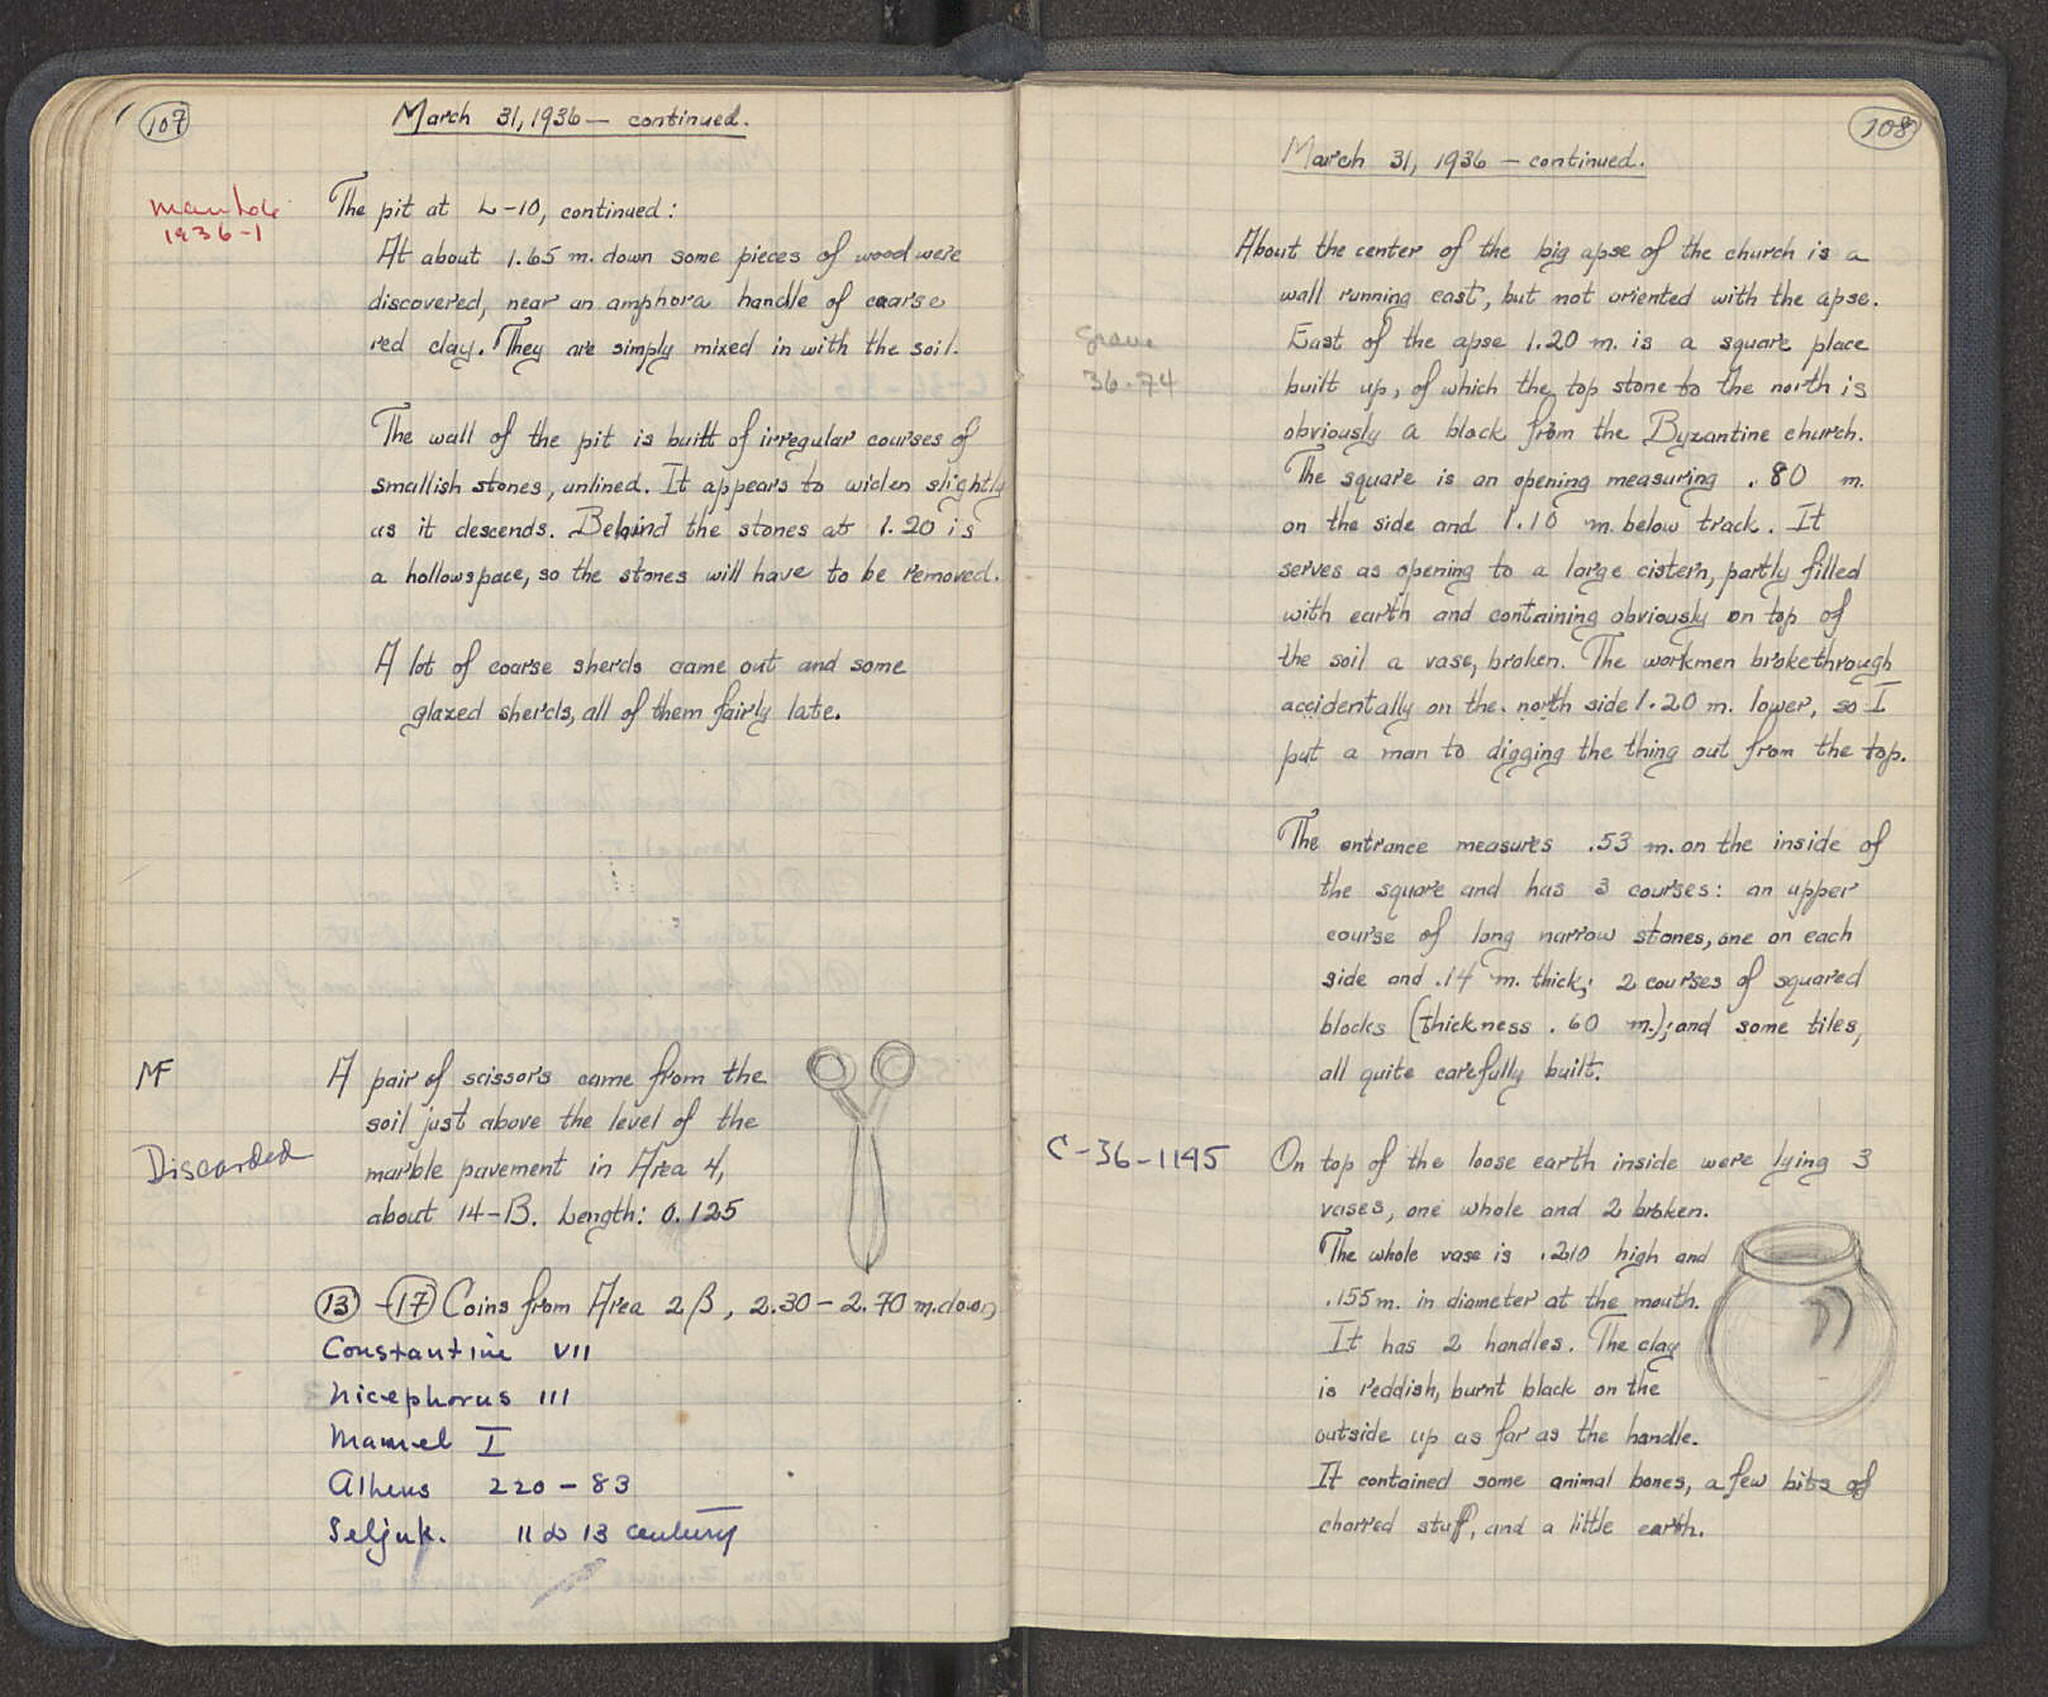 107
March 31, 1936 — continued.
manhole
1936-1
The pit at L-10, continued:
At about 1.65 m. down some pieces of wood were
discovered, near an amphora handle of coarse
red clay. They are simply mixed in with the soil.
The wall of the pit is built of irregular courses of
smallish stones, unlined. It appears to widen slightly
as it descends. Behind the stones at 1.20 is
a hollow space, so the stones will have to be removed.
A lot of coarse sherds came out and some
glazed sherds, all of them fairly late.
MF
Discarded
A pair of scissors came from the
soil just above the level of the
marble pavement in Area 4,
about 14-B. Length: 0.125
13 - 17 Coins from Area 2 β, 2.30 - 2.70 m. down
Constantine VII
Nicephorus III
Manuel I
Athens 220 - 83
Seljuk. 11 to 13 century
108
March 31, 1936 — continued.
About the center of the big apse of the church is a
wall running east, but not oriented with the apse.
grave
36-74
East of the apse 1.20 m. is a square place
built up, of which the top stone to the north is
obviously a block from the Byzantine church.
The square is an opening measuring .80 m.
on the side and 1.10 m. below track. It
serves as opening to a large cistern, partly filled
with earth and containing obviously on top of
the soil a vase, broken. The workmen broke through
accidentally on the north side 1.20 m. lower, so I
put a man to digging the thing out from the top.
The entrance measures .53 m. on the inside of
the square and has 3 courses: an upper
course of long narrow stones, one on each
side and .14 m. thick; 2 courses of squared
blocks (thickness .60 m.); and some tiles,
all quite carefully built.
C-36-1145
On top of the loose earth inside were lying 3
vases, one whole and 2 broken.
The whole vase is .210 high and
.155 m. in diameter at the mouth.
It has 2 handles. The clay
is reddish, burnt black on the
outside up as far as the handle.
It contained some animal bones, a few bits of
charred stuff, and a little earth.